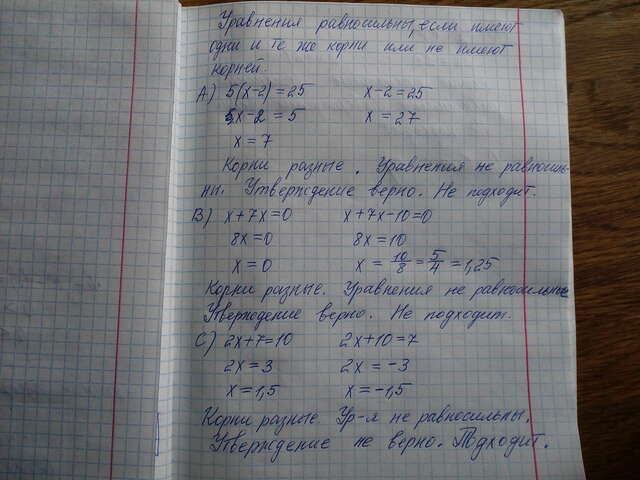 Уравнения равносильны, если имеют
одни и те же корни или не имеют
корней.
А) 5(x-2)=25 x-2=25
x-2=5 x=27
x=7
Корни разные. Уравнения не равносиль-
ны. Утверждение верно. Не подходит.
В) x+7x=0 x+7x-10=0
8x=0 8x=10
x=0 x=10/8=5/4=1,25
Корни разные. Уравнения не равносильные
Утверждение верно. Не подходит.
С) 2x+7=10 2x+10=7
2x=3 2x=-3
x=1,5 x=-1,5
Корни разные. Ур-я не равносильны.
Утверждение не верно. Подходит.